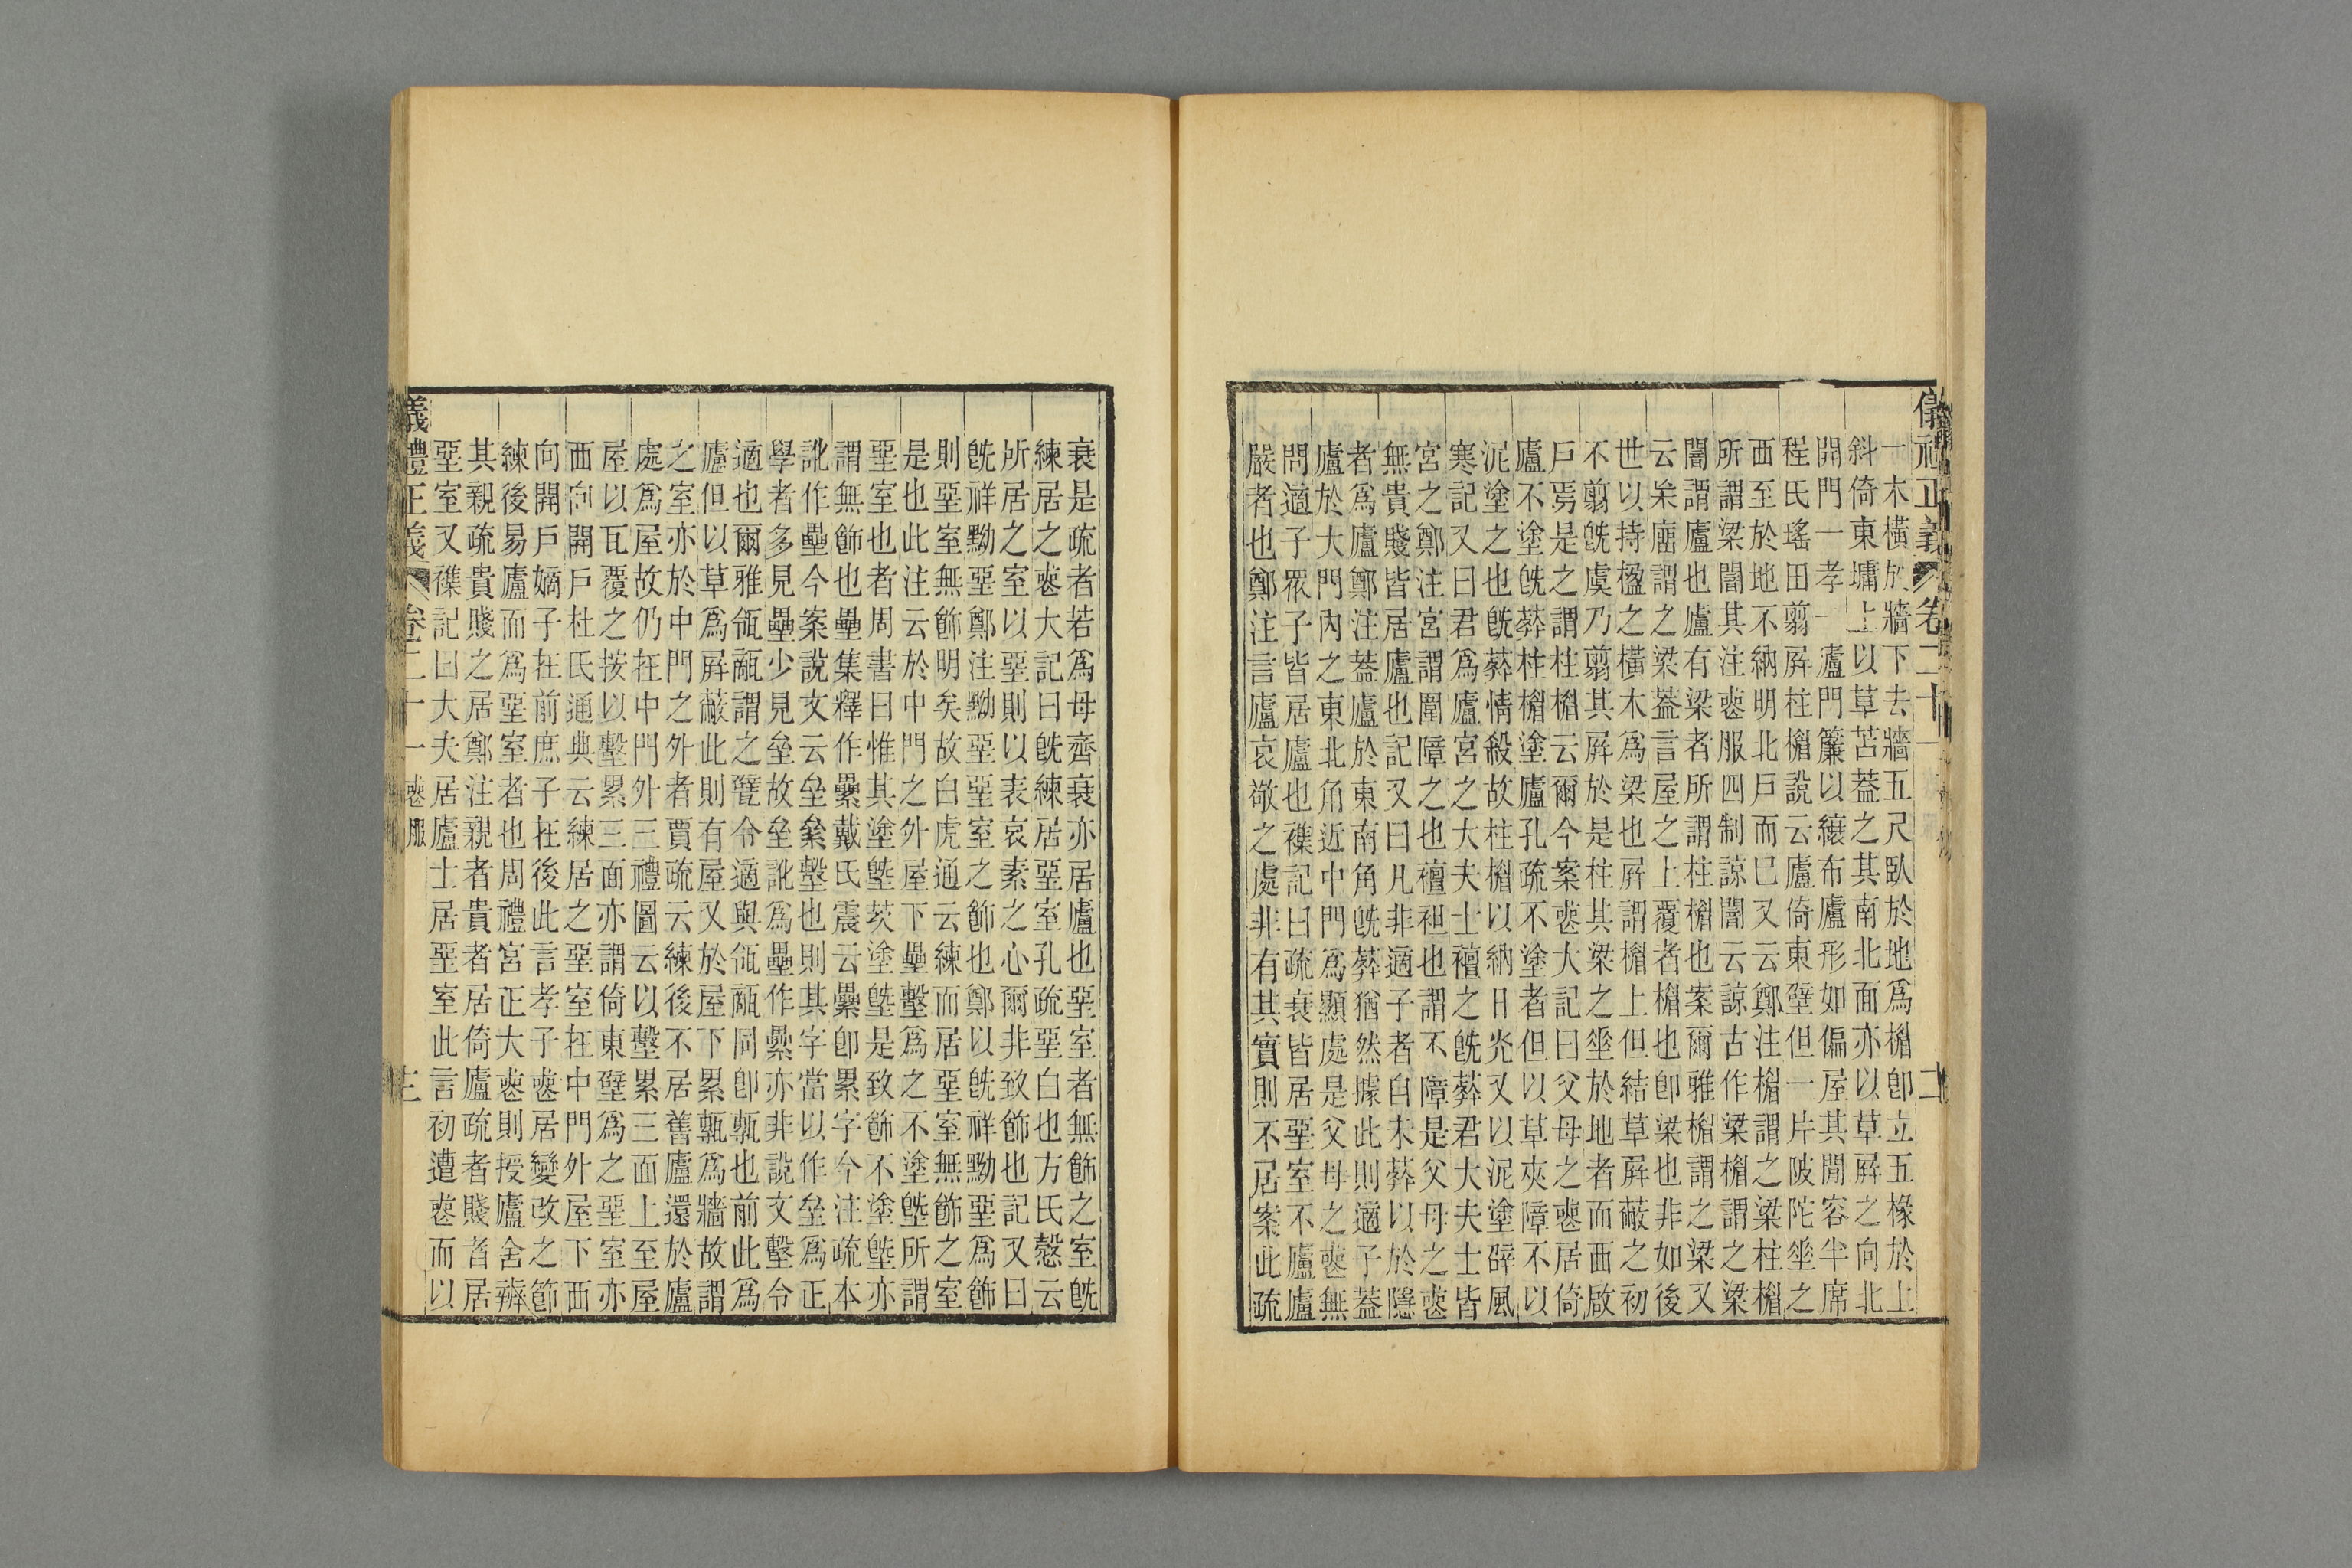 儀禮正義 卷二十一 二
一木橫於牆下去牆五尺臥於地爲楣卽立五椽於上
斜倚東墉上以草苫葢之其南北面亦以草屏之向北
開門一孝一廬門簾以縗布廬形如偏屋其閒容半席
程氏瑤田翦屏柱楣說云廬倚東壁但一片陂陀坐之
西至於地不納明北戶而巳又云鄭注楣謂之梁柱楣
所謂梁闇其注喪服四制諒闇云諒古作梁楣謂之梁
闇謂廬也廬有梁者所謂柱楣也案爾雅楣謂之梁又
云杗廇謂之梁葢言屋之上覆者楣也卽梁也非如後
世以持楹之橫木爲梁也屏謂楣上但結草屏蔽之初
不翦旣虞乃翦其屏於是柱其梁之坐於地者而西啟
戶焉是之謂柱楣云爾今案喪大記曰父母之喪居倚
廬不塗旣葬柱楣塗廬孔疏不塗者但以草夾障不以
泥塗之也旣葬情殺故柱楣以納日光又以泥塗辟風
寒記又曰君爲廬宮之大夫士襢之旣葬君大夫士皆
宮之鄭注宮謂圍障之也襢袒也謂不障是父母之喪
無貴賤皆居廬也記又曰凡非適子者自未葬以於隱
者爲廬鄭注葢廬於東南角旣葬猶然據此則適子葢
廬於大門內之東北角近中門爲顯處是父母之喪無
問適子眾子皆居廬也襍記曰疏衰皆居堊室不廬廬
嚴者也鄭注言廬哀敬之處非有其實則不居案此疏
衰是疏者若爲母齊衰亦居廬也堊室者無飾之室旣
練居之喪大記曰旣練居堊室孔疏堊白也方氏慤云
所居之室以堊則以表哀素之心爾非致飾也記又曰
旣祥黝堊鄭注黝堊堊室之飾也鄭以旣祥黝堊爲飾
則堊室無飾明矣故白虎通云練而居堊室無飾之室
是也此注云於中門之外屋下壘墼爲之不塗塈所謂
堊室也者周書曰惟其塗塈茨塗塈是致飾不塗塈亦
謂無飾也壘集釋作纍戴氏震云纍卽累字今注疏本
訛作壘今案說文云垒絫墼也則其字當以作垒爲正
學者多見壘少見垒故垒訛爲壘作纍亦非說文墼令
適也爾雅瓴甋謂之甓令適與瓴甋同卽甎也前此爲
廬但以草爲屏蔽此則有屋又於屋下累甎爲牆故謂
之室亦於中門之外者賈疏云練後不居舊廬還於廬
處爲屋故仍在中門外三禮圖云以墼累三面上至屋
屋以瓦覆之按以墼累三面亦謂倚東壁爲之堊室亦
西向開戶杜氏通典云練居之堊室在中門外屋下西
向開戶嫡子在前庶子在後此言孝子喪居變改之節
練後易廬而爲堊室者也周禮宮正大喪則授廬舍辨
其親疏貴賤之居鄭注親者貴者居倚廬疏者賤者居
堊室又襍記曰大夫居廬士居堊室此言初遭喪而以
儀禮正義 卷二十一 喪服 三